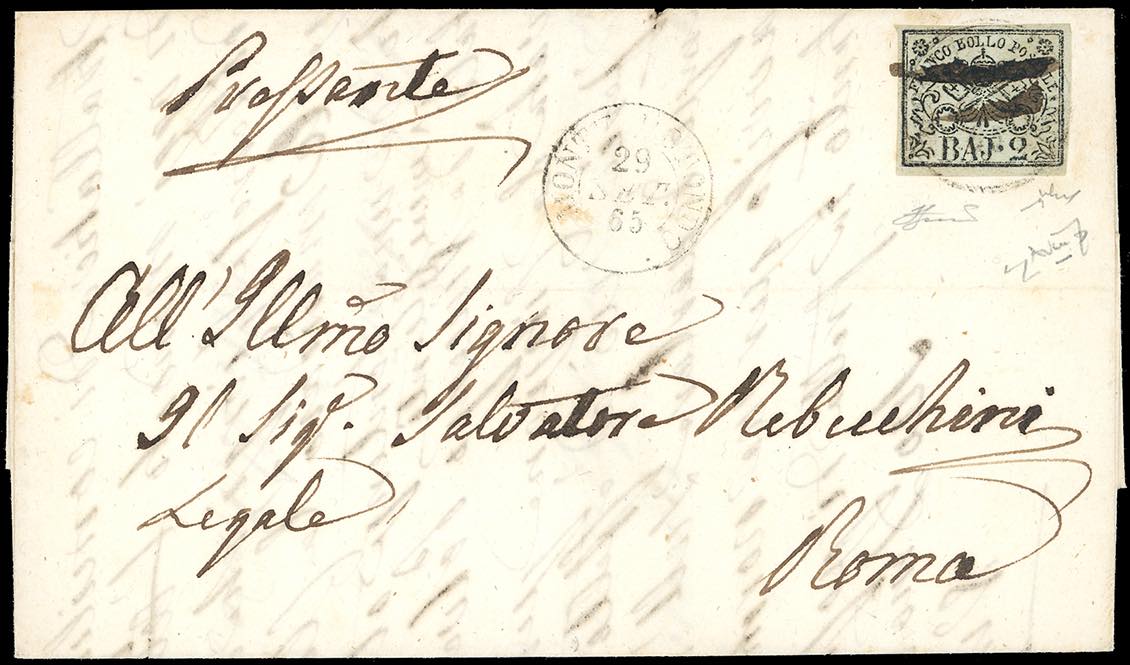 Pressante
FRANCO BOLLO POSTALE
BAJ. 2
29
65
All' Illmo Signore
Il Sigr. Salvatore Rebecchini
Legale
Roma